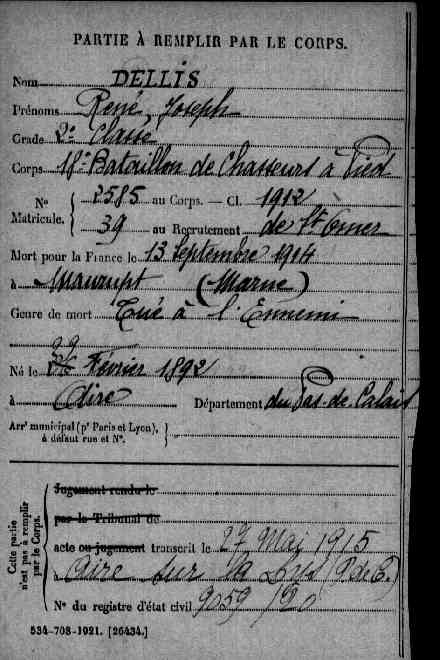 PARTIE À REMPLIR PAR LE CORPS.
Nom DELLIS
Prénoms René, Joseph
Grade 2e Classe
Corps 18e Bataillon de Chasseurs à Pied
N° Matricule. { 2585 au Corps. — Cl. 1912
39 au Recrutement de St Omer
Mort pour la France le 13 Septembre 1914
à Maurupt (Marne)
Genre de mort Tué à l'Ennemi
29
Né le Février 1892
à Aire Département du Pas-de-Calais
Arrt municipal (pr Paris et Lyon), à défaut rue et N°. }
Cette partie n'est pas à remplir par le Corps.
Jugement rendu le
par le Tribunal de
acte ou jugement transcrit le 27 Mai 1915
à Aire sur la Lys (P. de C.)
N° du registre d'état civil 9059/20
534-708-1921. [26434.]